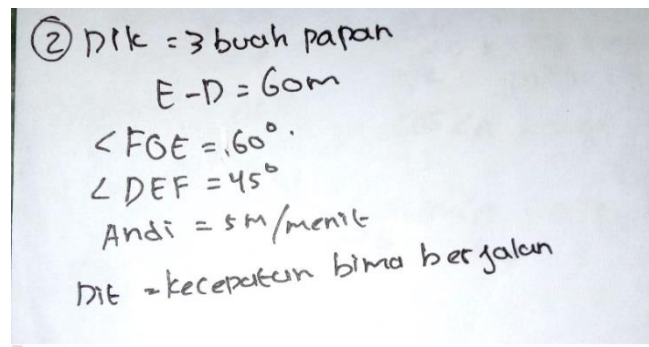 ② Dik = 3 buah papan
E-D = 60m
< FGE = 60°.
∠ DEF = 45°
Andi = 5 M/menit
Dit = kecepatan bima berjalan